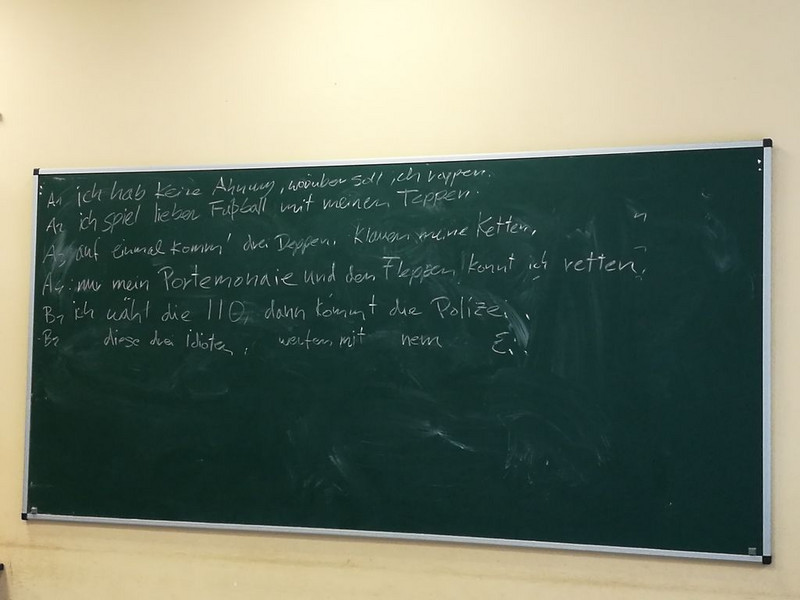 A1 ich hab keine Ahnung, worüber soll ich rappen.
A2 ich spiel lieber Fußball mit meinen Teppen.
A3 auf einmal komm' drei Deppen, klauen meine Ketten,
A4: nur mein Portemonaie und den Fleppen konnt ich retten,
B1 ich wähl die 110, dann kommt die Polizei,
B2 diese drei Idioten, werfen mit nem Ei.